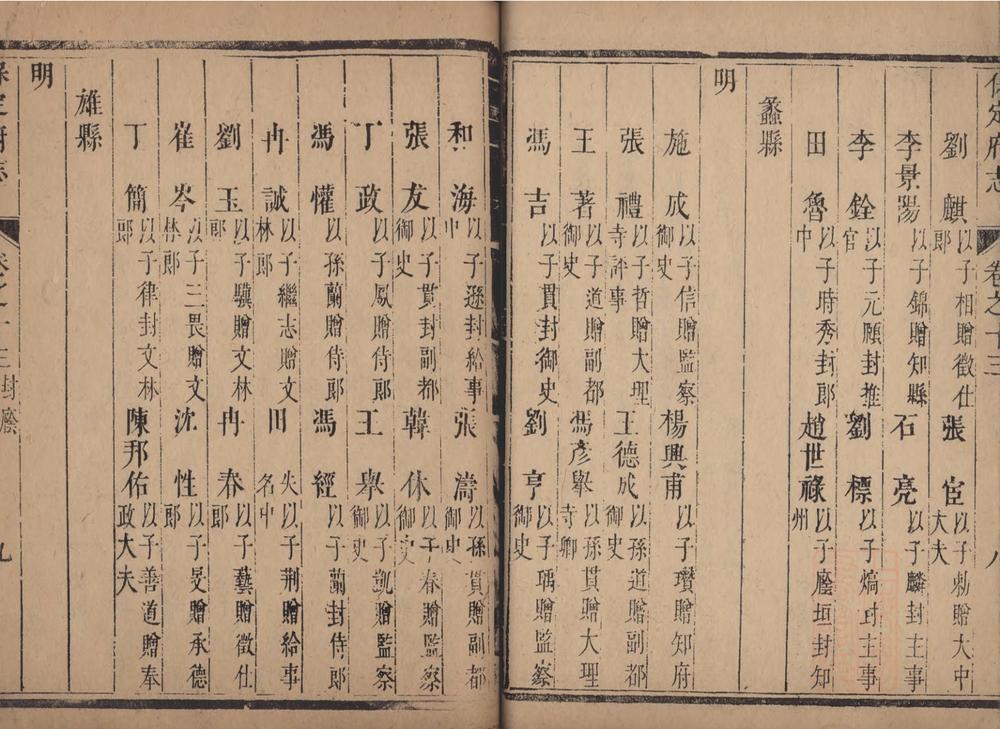 保定府志 卷之十三 八
劉麒 以子相贈徵仕郎 張宦 以子勅贈大中大夫
李景陽 以子錦贈知縣 石亮 以子麟封主事
李銓 以子元願封推官 劉標 以子熇封主事
田魯 以子時秀封郎中 趙世祿 以子垣封知州
蠡縣
明
施成 以子信贈監察御史 楊興甫 以子瓚贈知府
張禮 以子哲贈大理寺評事 王德成 以孫道贈副都御史
王著 以子道贈副都御史 馮彥舉 以孫貫贈大理寺卿
馮吉 以子貫封御史 劉亨 以子瑀贈監察御史
和海 以子遜封給事中 張濤 以孫貫贈副都御史
張友 以子貫封副都御史 韓休 以子春贈監察御史
丁政 以子鳳贈侍郎 王舉 以子凱贈監察御史
馮懽 以孫蘭贈侍郎 馮經 以子蘭封侍郎
冉誠 以子繼志贈文林郎 田 失名 以子荆贈給事中
劉玉 以子驥贈文林郎 冉春 以子藝贈徵仕郎
崔岑 以子三畏贈文林郎 沈性 以子旻贈承德郎
丁簡 以子律封文林郎 陳邦佑 以子善道贈奉政大夫
雄縣
明
保定府志 卷之十三 封廕 九